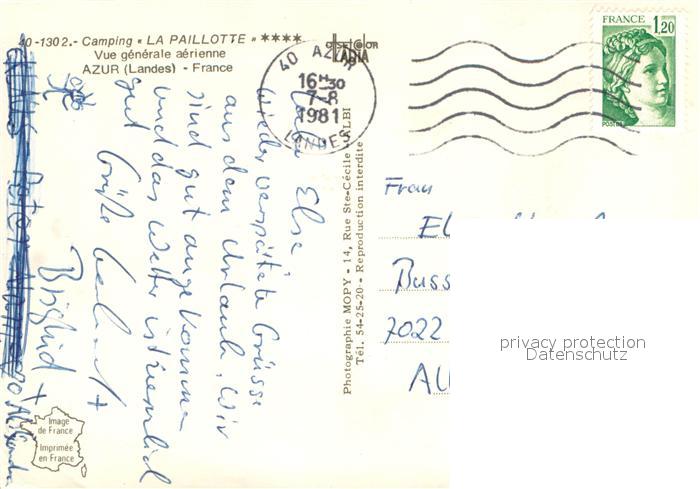 40-1302.- Camping « LA PAILLOTTE » ★★★★
Vue générale aérienne
AZUR (Landes) - France
40 AZUR
16 H 30
7-8
1981
LANDES
FRANCE 1,20
POSTES
Liebe Else,
wieder verspätete Grüsse
aus dem Urlaub. Wir
sind gut angekommen
und das Wetter ist ziemlich
gut
Grüße
Brighid +
Photographie MOPY - 14, Rue Ste-Cécile - ALBI
Tél. 54-25-20 - Reproduction interdite
Frau
El
Buss
7022
privacy protection
Datenschutz
Image
de France
Imprimée
en France